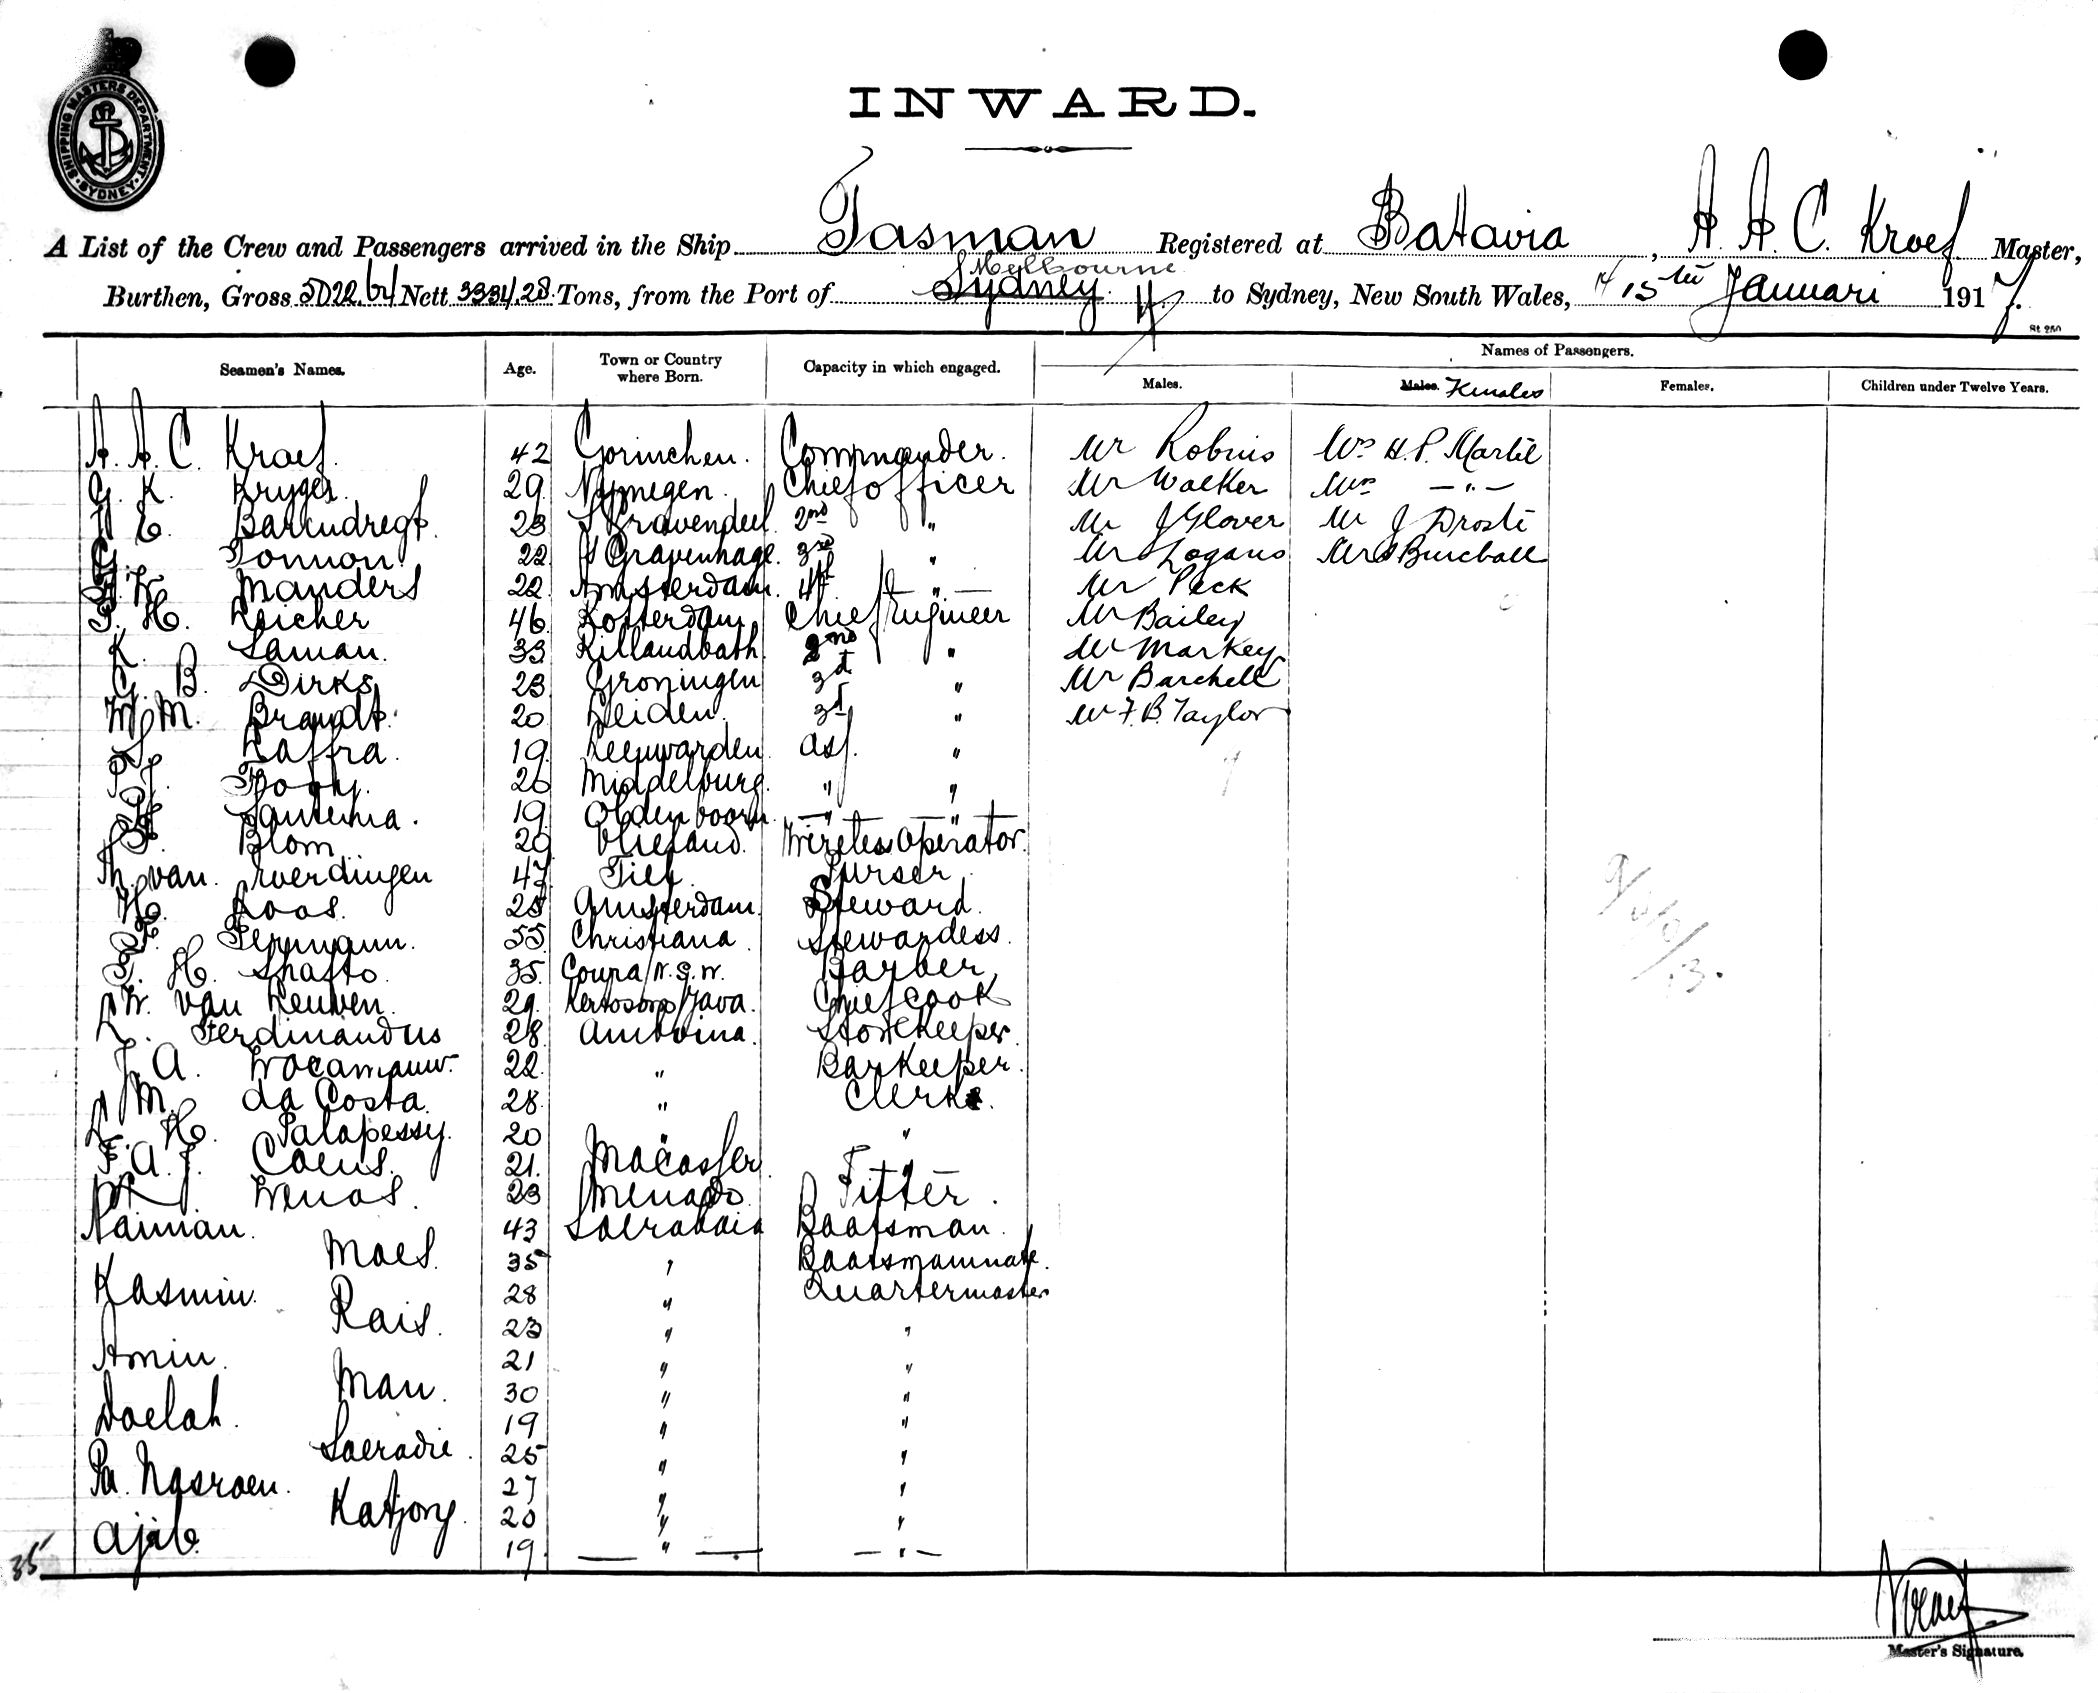 SHIPPING MASTERS DEPARTMENT · SYDNEY ·
INWARD.
A List of the Crew and Passengers arrived in the Ship Tasman Registered at Batavia, A. A. C. Kroef Master,
Melbourne
Burthen, Gross 5022.64 Nett 3334.28 Tons, from the Port of Sydney to Sydney, New South Wales, 15th Januari 1917.
St 250
Seamen's Names. Age. Town or Country where Born. Capacity in which engaged. Names of Passengers.
Males. Males. Females Females. Children under Twelve Years.
A. A. C. Kroef. 42 Gorinchem. Commander. Mr Robins Mr H. P. Martil
G. K. Kryger. 29 Nymegen. Chief officer Mr Walker Mrs —"—
H. E. Barendregt. 23 s Gravendeel 2nd " Mr J Glover Mr J Droste
G. Tonnon. 22 s Gravenhage. 3rd " Mr Logans Mrs Burchall
W. Manders 22 Amsterdam. 4th " Mr Peck
F. H. Reicher 46 Rotterdam Chief Engineer Mr Bailey
K. Saman. 33 2nd " Mr Markey
G. B. Dirks 23 Groningen 3d " Mr Barchell
W. M. Brandt. 20 Leiden. 3d " Mr F. B. Taylor
Laffra. 19 Leeuwarden ass. "
P. J. Pooy. 20 Middelburg. " "
Santema. 19 Oldenboorn. — " — "
Blom 20 Vlieland. Wireless Operator.
Th. van Everdingen 47 Tiel. Purser
H. Koos. 25 Amsterdam. Steward.
Fermann. 55 Christiana Stewardess.
F. H. Shafto 35. Coura / N.S.W. Barber
W. van Leuwen. 29. Kertosono / Java. Chief cook
L. Ferdinandus 28 Amboina. Storekeeper.
J. A. Wocamauw. 22. " Barkeeper.
M. da Costa. 28. " Clerk.
L. H. Palapessy. 20 " "
F. A. J. Coens. 21. Macasser "
Wenas. 23 Menado Fitter.
Naiman. 43 Soerabaia Baatsman.
Moes. 35 " Baatsmanmate.
Kasmin. 28 " Quartermaster
Rais. 23 " "
Amin. 21 " "
Man. 30 " "
Doelah. 19 " "
Soeradie. 25 " "
Pa. Nasroen. 27 " "
Katjong. 20 " "
35 Ajib. 19. — " — — " —
Kroef
Master's Signature.